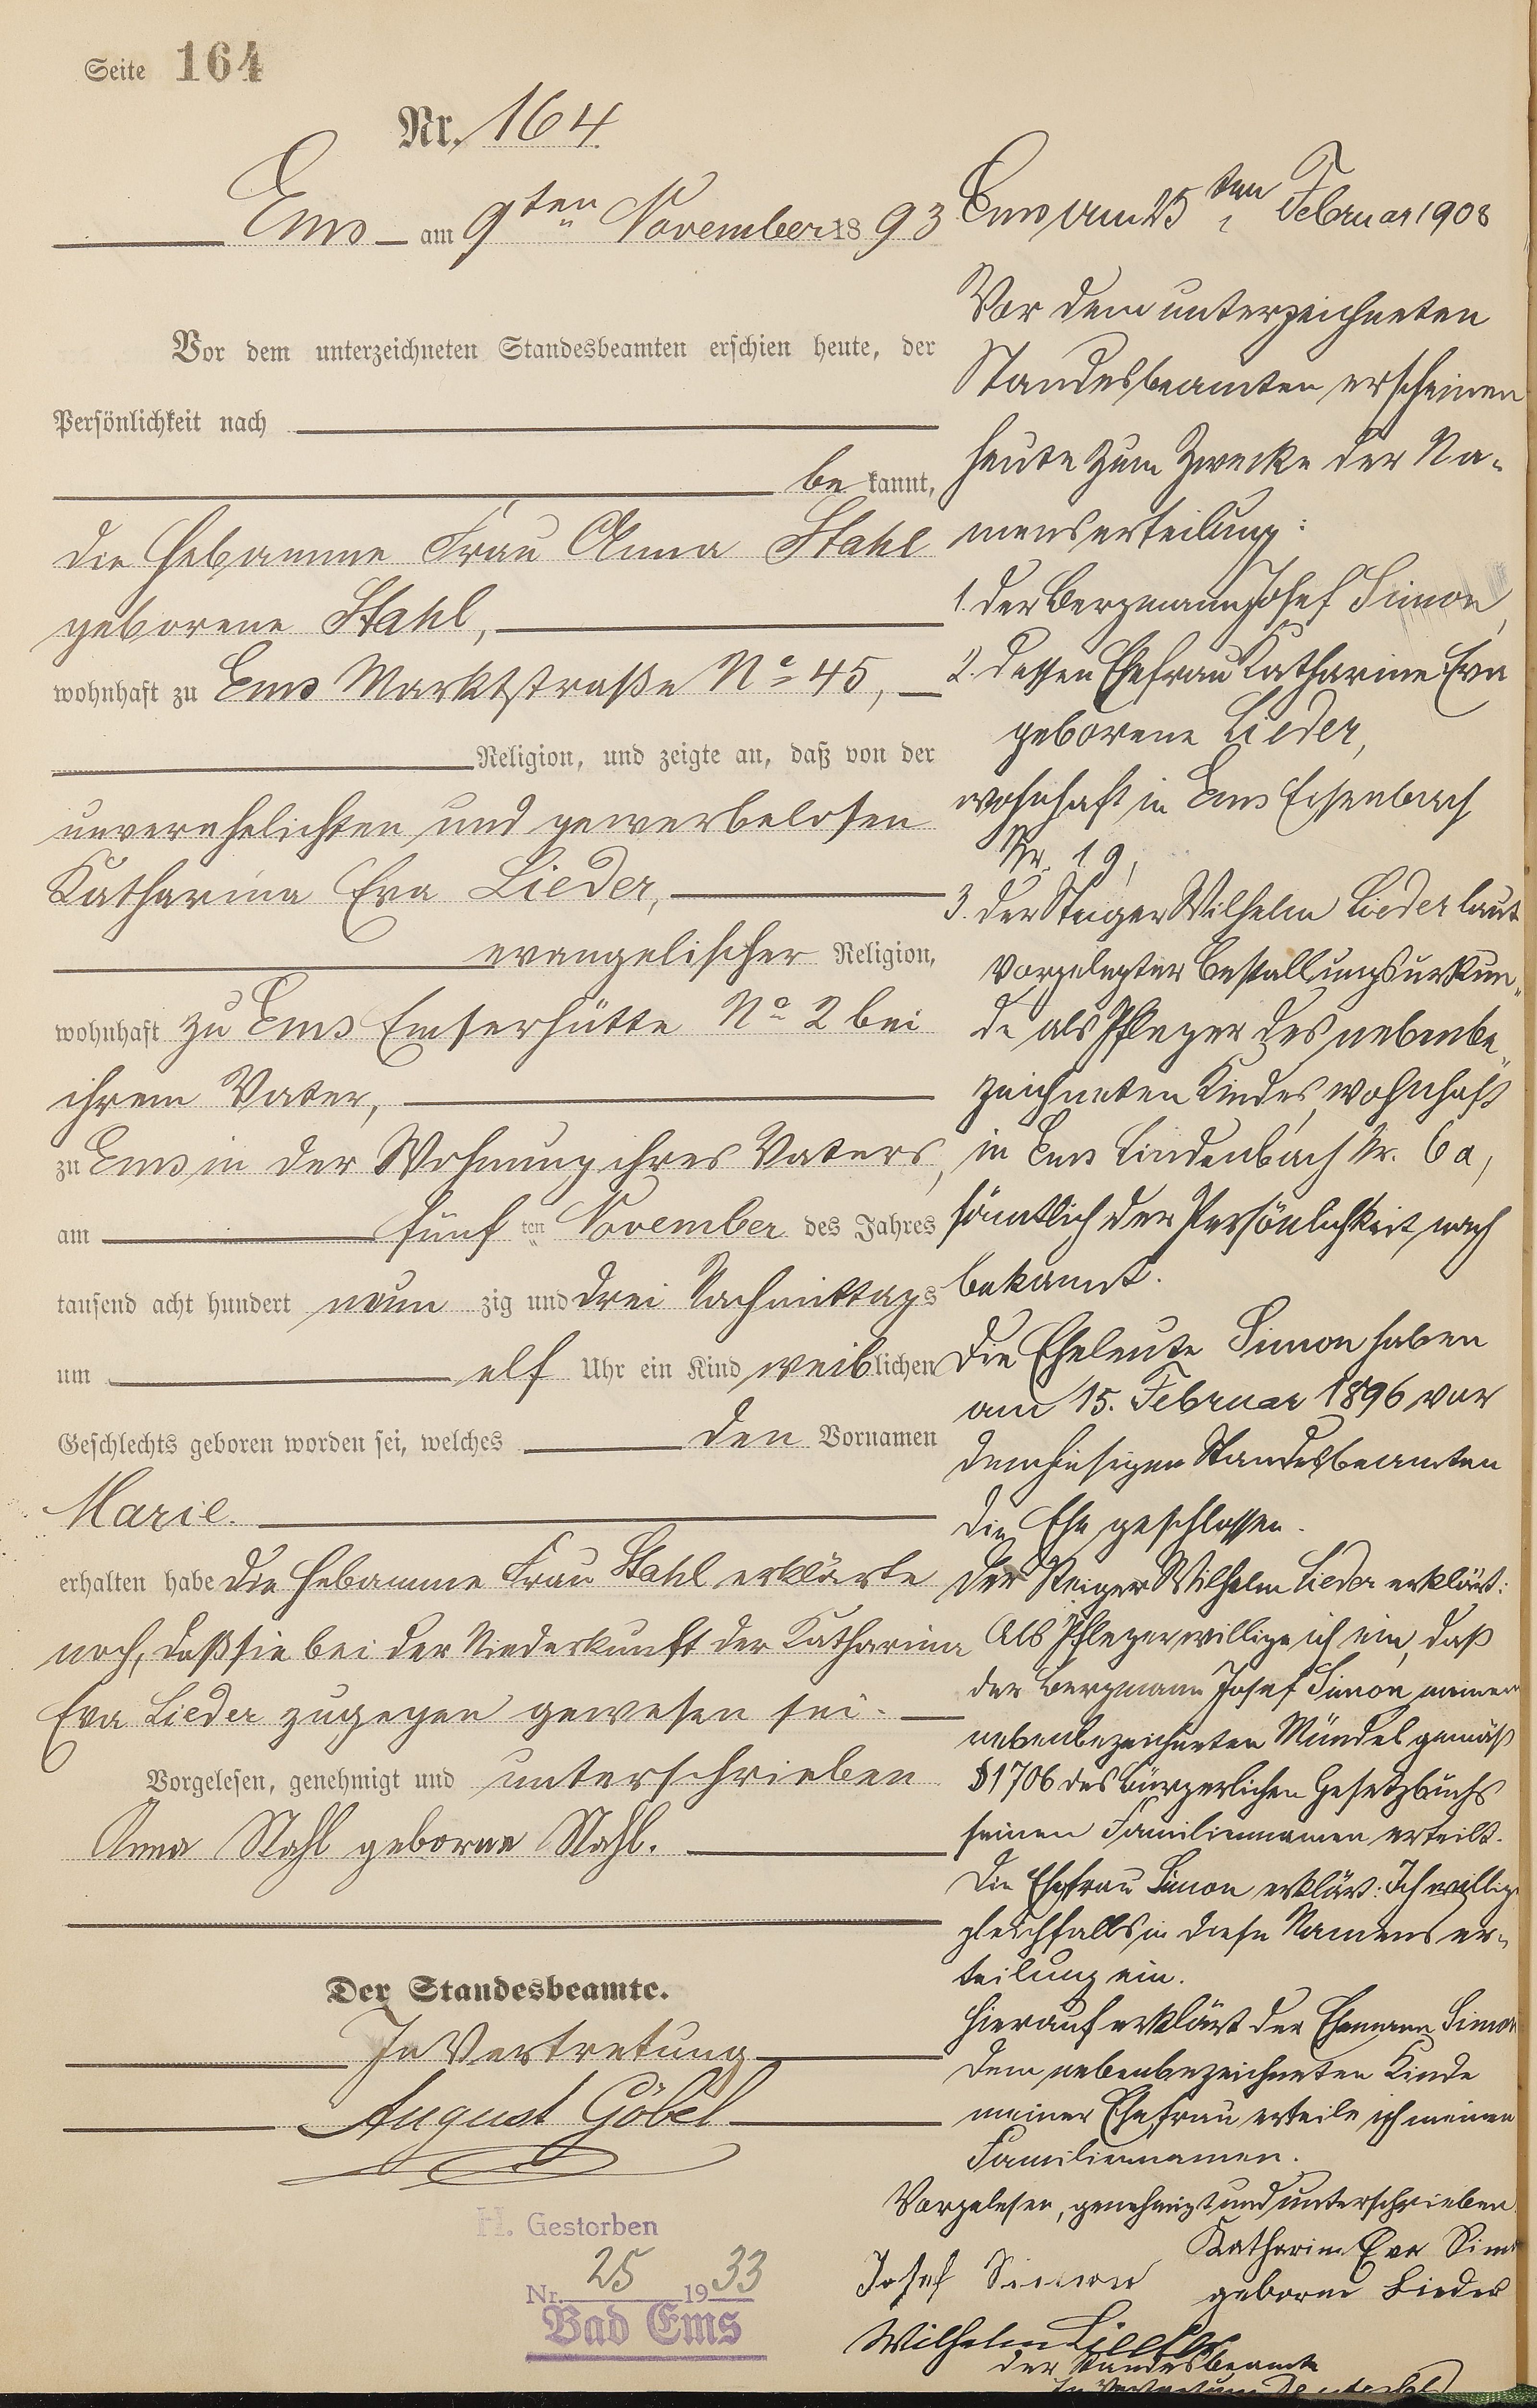 Seite 164
Nr. 164
Ems am 9ten November 1893
Vor dem unterzeichneten Standesbeamten erschien heute, der
Persönlichkeit nach
be kannt,
die Hebamme Frau Anna Stahl
geborene Stahl,
wohnhaft zu Ems Marktstraße No 45,
Religion, und zeigte an, daß von der
unverehelichten und gewerbelosen
Katharina Eva Lieder,
evangelischer Religion,
wohnhaft zu Ems Emserhütte No 2 bei
ihrem Vater,
zu Ems in der Wohnung ihres Vaters,
am fünf ten November des Jahres
tausend acht hundert neun zig und drei Nachmittags
um elf Uhr ein Kind weiblichen
Geschlechts geboren worden sei, welches den Vornamen
Marie.
erhalten habe die Hebamme Frau Stahl erklärte
noch, daß sie bei der Niederkunft der Katharina
Eva Lieder zugegen gewesen sei.
Vorgelesen, genehmigt und unterschrieben
Anna Stahl geborne Stahl.
Der Standesbeamte.
In Vertretung
August Göbel
H. Gestorben
Nr. 25 1933
Bad Ems
Ems am 25ten Februar 1908
Vor dem unterzeichneten
Standesbeamten erscheinen
heute zum Zwecke der Na-
menserteilung:
1. der Bergmann Josef Simon,
2. dessen Ehefrau Katharine Eva
geborene Lieder,
wohnhaft in Ems Eisenbach
Nr. 19,
3. der Steiger Wilhelm Lieder laut
vorgelegter Bestallungsurkun-
de als Pfleger des nebenbe-
zeichneten Kindes, wohnhaft
in Ems Lindenbach Nr. 6a,
sämtlich der Persönlichkeit nach
bekannt.
Die Eheleute Simon haben
am 15. Februar 1896 vor
dem hiesigen Standesbeamten
die Ehe geschlossen.
Der Steiger Wilhelm Lieder erklärt:
Als Pfleger willige ich ein, daß
der Bergmann Josef Simon meinem
nebenbezeichneten Mündel gemäß
§ 1706 des Bürgerlichen Gesetzbuchs
seinen Familiennamen erteilt.
Die Ehefrau Simon erklärt: Ich willige
gleichfalls in diese Namenser-
teilung ein.
Hierauf erklärt der Ehemann Simon
dem nebenbezeichneten Kinde
meiner Ehefrau erteile ich meinen
Familiennamen.
Vorgelesen, genehmigt und unterschrieben.
Josef Simon
Katharine Eva Simon
geborne Lieder
Wilhelm Lieder
Der Standesbeamte
In Vertretung